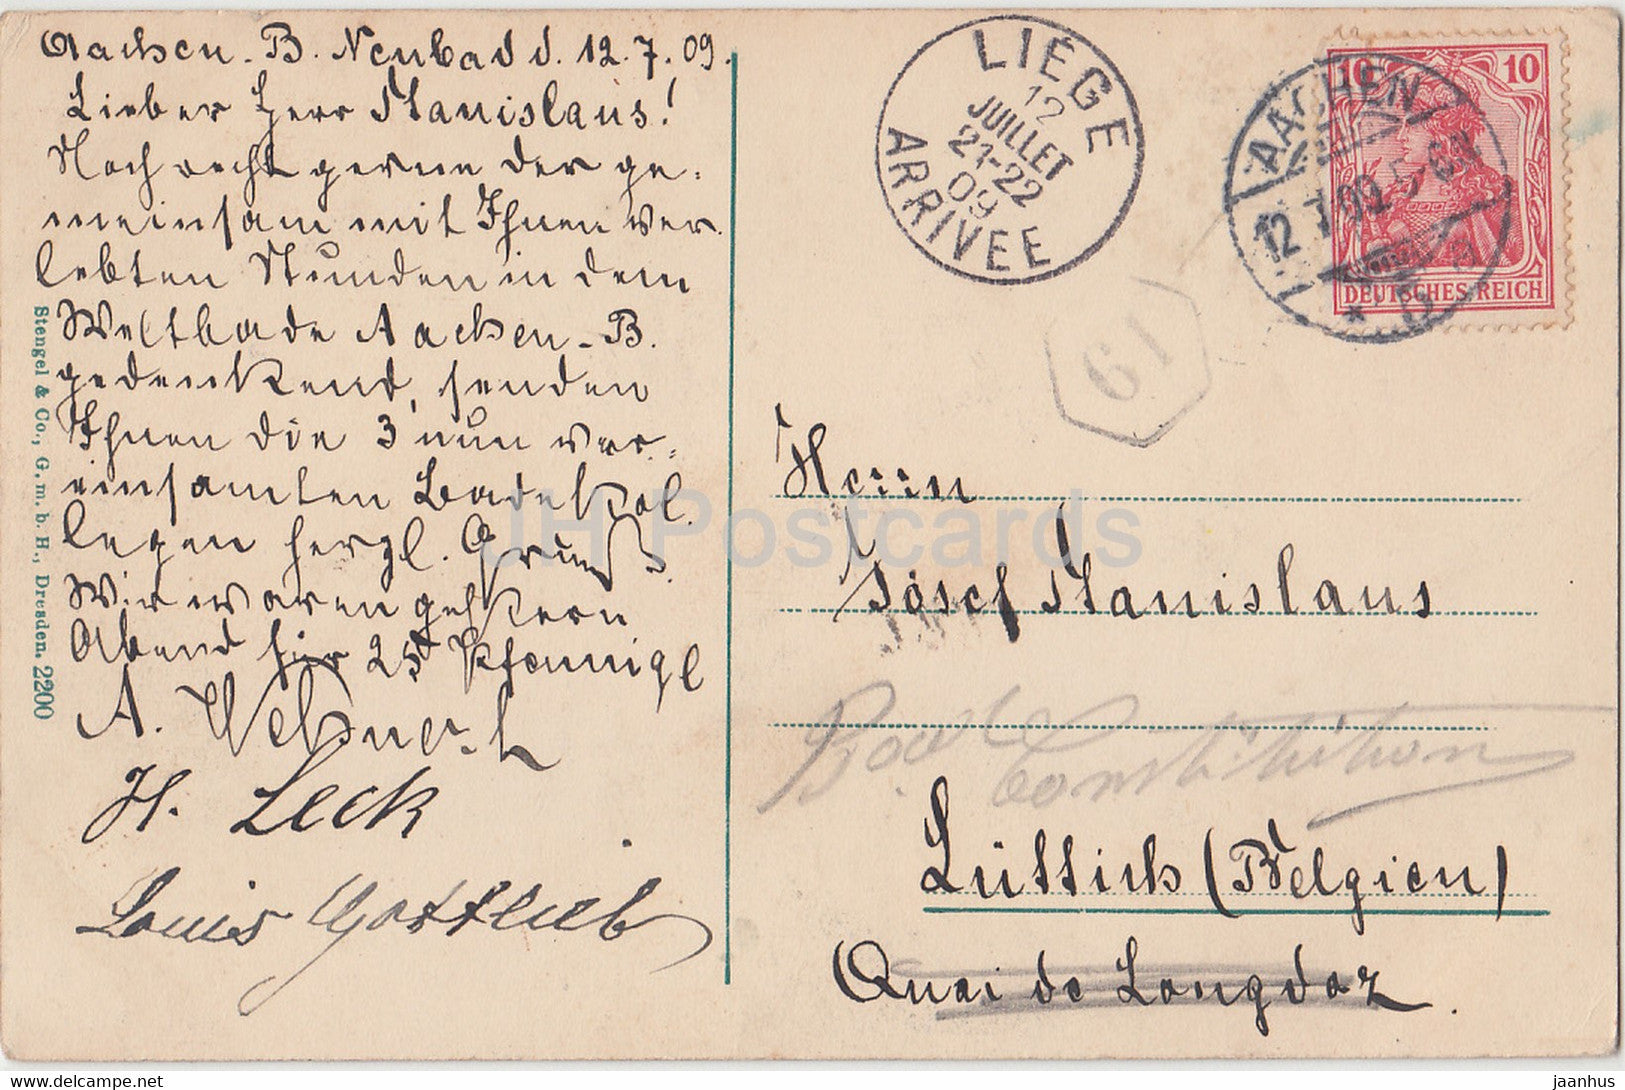 Aachen - B. Neubad d. 12.7.09.
Lieber Herr Stanislaus!
Noch recht gerne der ge-
meinsam mit Ihnen ver
lebten Stunden in dem
Weltbade Aachen - B.
gedenkend, senden
Ihnen die 3 nun ver-
einsamten Badekol.
legen herzl. Gruß.
Wir waren gestern
Abend für 25
A.
H. Leck
Louis Gottlieb
Stengel & Co., G. m. b. H., Dresden. 2200
LIÉGE
12
JUILLET
21-22
09
ARRIVÉE
AACHEN
12.7.09. 5-6N
10 10
DEUTSCHES REICH
61
Herrn
Josef Stanislaus
Constitution
Lüttich (Belgien)
Quai de Longdoz.
JH Postcards
https://www.delcampe.net
jaanhus